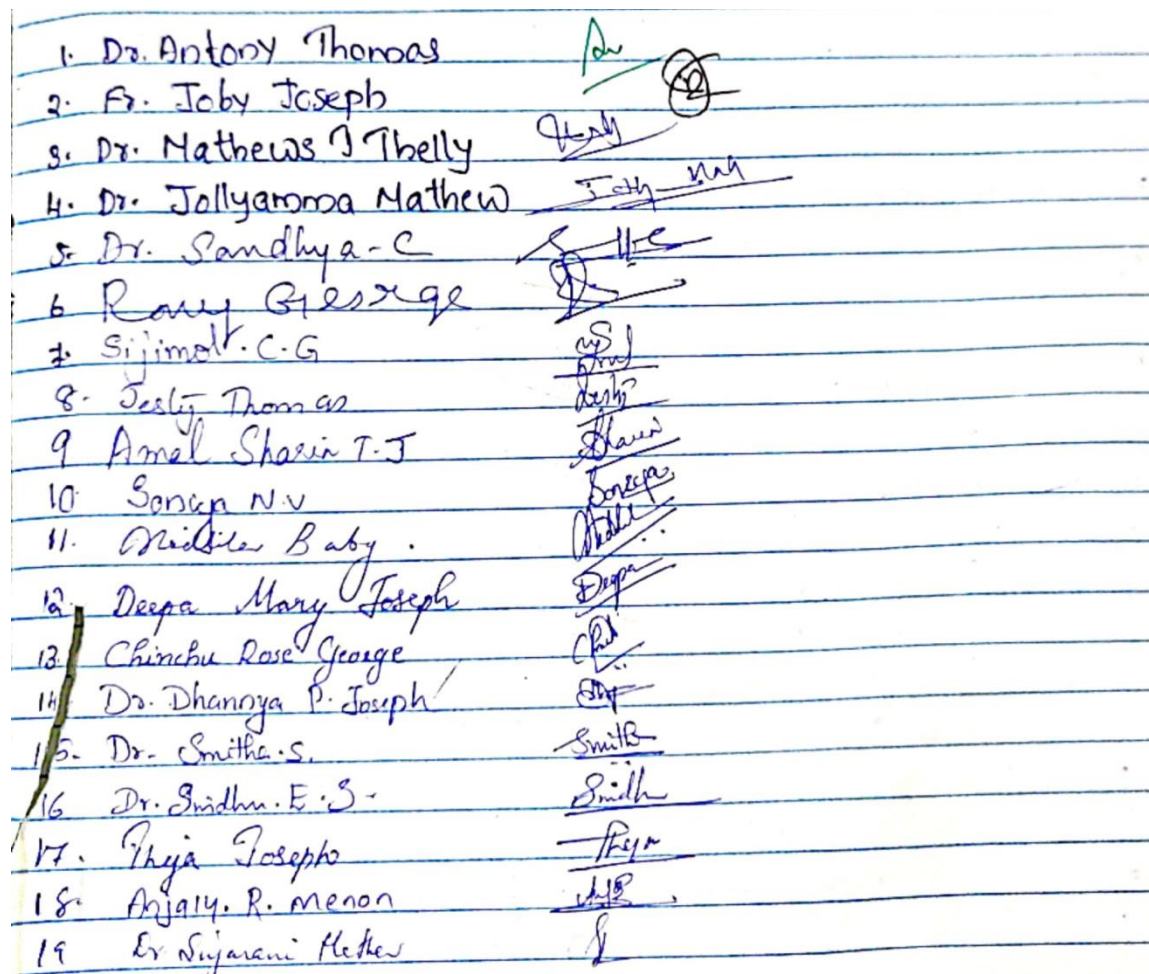 1. Dr. Antony Thomas
2. Fr. Joby Joseph
3. Dr. Mathews J Thelly
4. Dr. Jollyamma Mathew
5. Dr. Sandhya - C
6 Rony George
7. Sijimol. C. G
8. Jesly Thomas Jesly
9 Amal Sharin T. J Sharin
10. Sonaya N. V Sonaya
11. Baby.
12. Deepa Mary Joseph Deepa
13. Chinchu Rose George
14 Dr. Dhannya P. Joseph
15. Dr. Smitha. S. Smitha
16 Dr. Sindhu. E. S. Sindh
17. Thija Joseph
18. Anjaly. R. Menon
19 Dr Sujarani Mathew